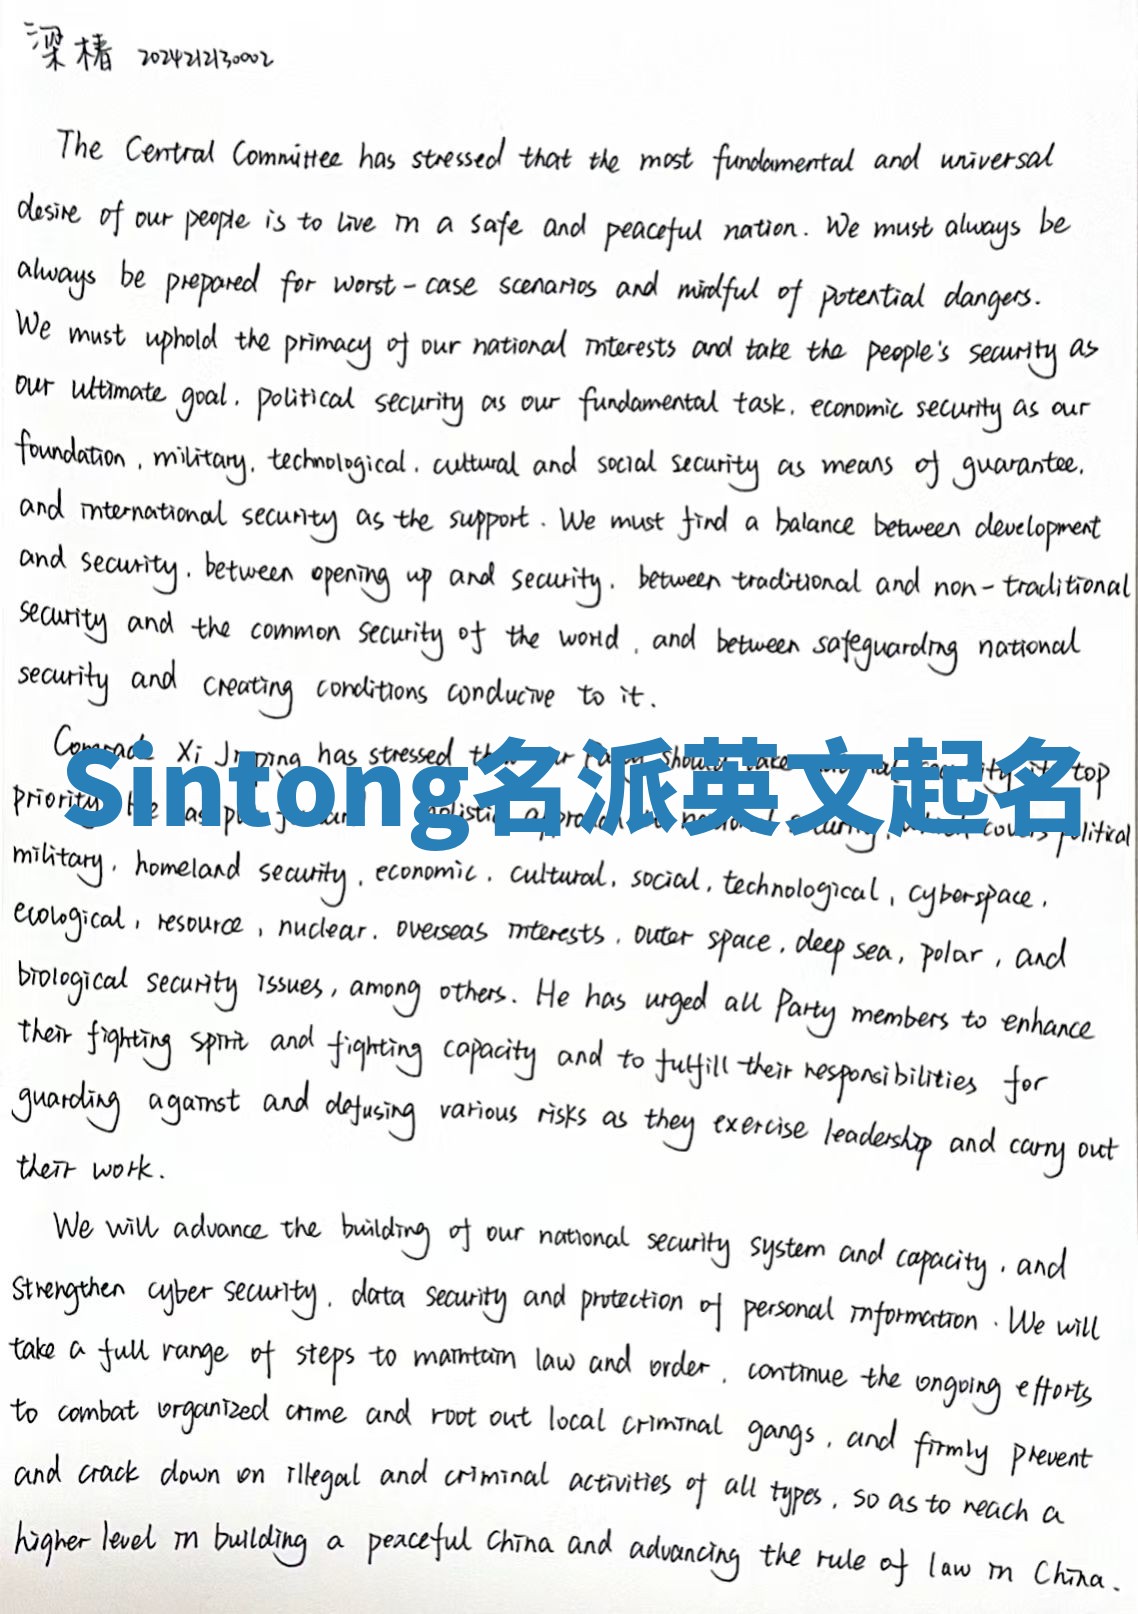 梁椿 2024212130002
The Central Committee has stressed that the most fundamental and universal
desire of our people is to live in a safe and peaceful nation. We must always be
always be prepared for worst-case scenarios and mindful of potential dangers.
We must uphold the primacy of our national interests and take the people's security as
our ultimate goal, political security as our fundamental task, economic security as our
foundation, military, technological, cultural and social security as means of guarantee,
and international security as the support. We must find a balance between development
and security, between opening up and security, between traditional and non-traditional
security and the common security of the world, and between safeguarding national
security and creating conditions conducive to it.
Comrade Xi Jinping has stressed should take top
Sintong名派英文起名
priority. He has approach national security, which covers political
military, homeland security, economic, cultural, social, technological, cyberspace,
ecological, resource, nuclear, overseas interests, outer space, deep sea, polar, and
biological security issues, among others. He has urged all Party members to enhance
their fighting spirit and fighting capacity and to fulfill their responsibilities for
guarding against and defusing various risks as they exercise leadership and carry out
their work.
We will advance the building of our national security system and capacity, and
strengthen cyber security, data security and protection of personal information. We will
take a full range of steps to maintain law and order, continue the ongoing efforts
to combat organized crime and root out local criminal gangs, and firmly prevent
and crack down on illegal and criminal activities of all types, so as to reach a
higher level in building a peaceful China and advancing the rule of law in China.